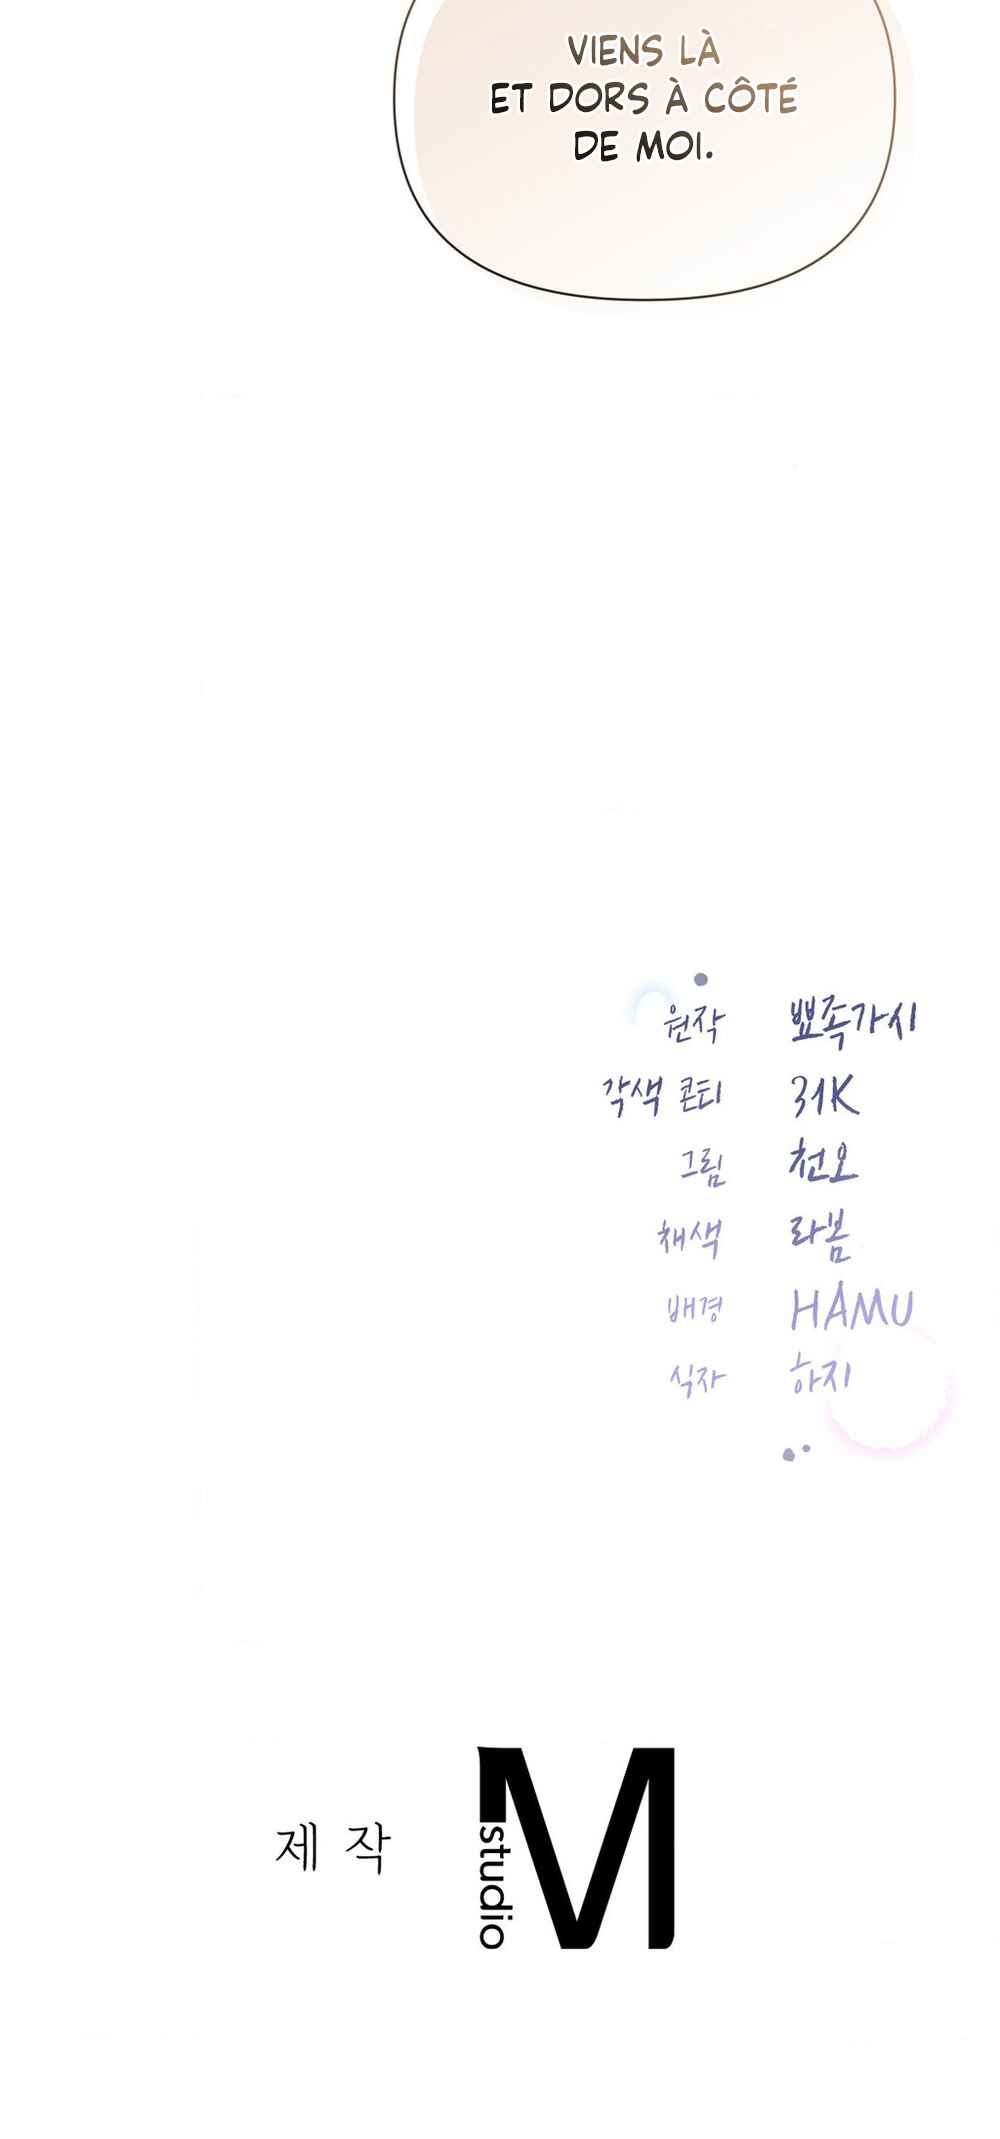 VIENS LÀ
ET DORS À CÔTÉ
DE MOI.
원작 뾰족가시
각색 콘티 31K
그림 천오
채색 라봄
배경 HAMU
식자 하지
제작 M studio